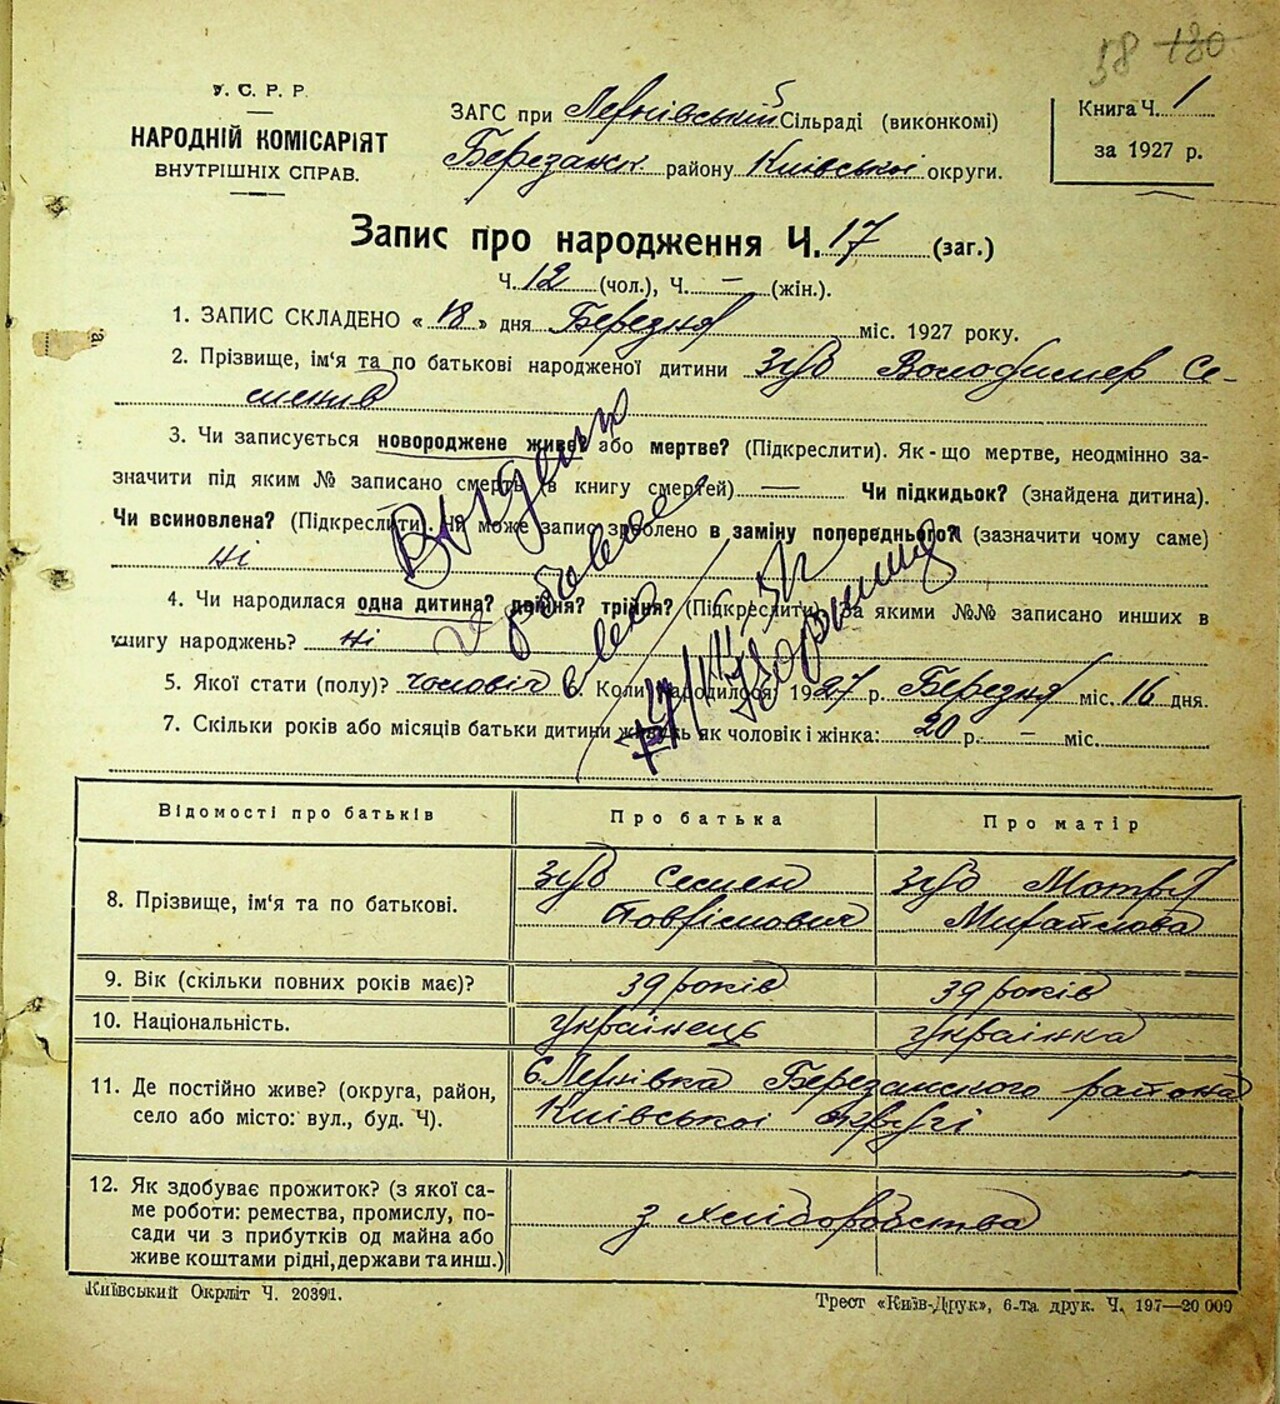 58 130
У. С. Р. Р.
НАРОДНІЙ КОМІСАРІЯТ
ВНУТРІШНІХ СПРАВ.
ЗАГС при Лехнівський Сільраді (виконкомі)
Березанськ. району Київської округи.
Книга Ч. 1
за 1927 р.
Запис про народження Ч. 17 (заг.)
Ч. 12 (чол.), Ч. – (жін.).
1. ЗАПИС СКЛАДЕНО « 18 » дня Березня міс. 1927 року.
2. Прізвище, ім‘я та по батькові народженої дитини Зуб Володимер Се-
менив
3. Чи записується новороджене живе? або мертве? (Підкреслити). Як-що мертве, неодмінно за-
значити під яким № записано смерть (в книгу смертей) — Чи підкидьок? (знайдена дитина).
Чи всиновлена? (Підкреслити). Чи може запис зроблено в заміну попереднього? (зазначити чому саме)
ні
4. Чи народилася одна дитина? двійня? трійня? (Підкреслити). За якими №№ записано инших в
книгу народжень? ні
5. Якої стати (полу)? чоловіч 6. Коли народилося? 1927 р. Березня міс. 16 дня.
7. Скільки років або місяців батьки дитини живуть як чоловік і жінка: 20 р. – міс.
Відомості про батьків
Про батька
Про матір
8. Прізвище, ім‘я та по батькові.
Зуб Семен
Зуб Мотря
Михайлова
9. Вік (скільки повних років має)?
39 років
39 років
10. Національність.
українець
українка
11. Де постійно живе? (округа, район,
село або місто: вул., буд. Ч).
с Лехнівка Березанського района
Київської округі
12. Як здобуває прожиток? (з якої са-
ме роботи: ремества, промислу, по-
сади чи з прибутків од майна або
живе коштами рідні, держави та инш.)
з хліборобства
Київський Окрліт Ч. 20391.
Трест «Київ-Друк», 6-та друк. Ч. 197—20 000